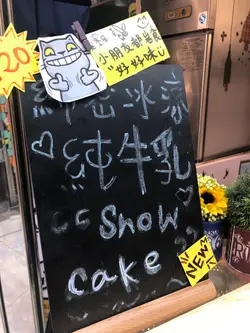 20
小朋友都坐食
"好好味"
綿密冰涼
純牛乳
Snow
cake
NEW